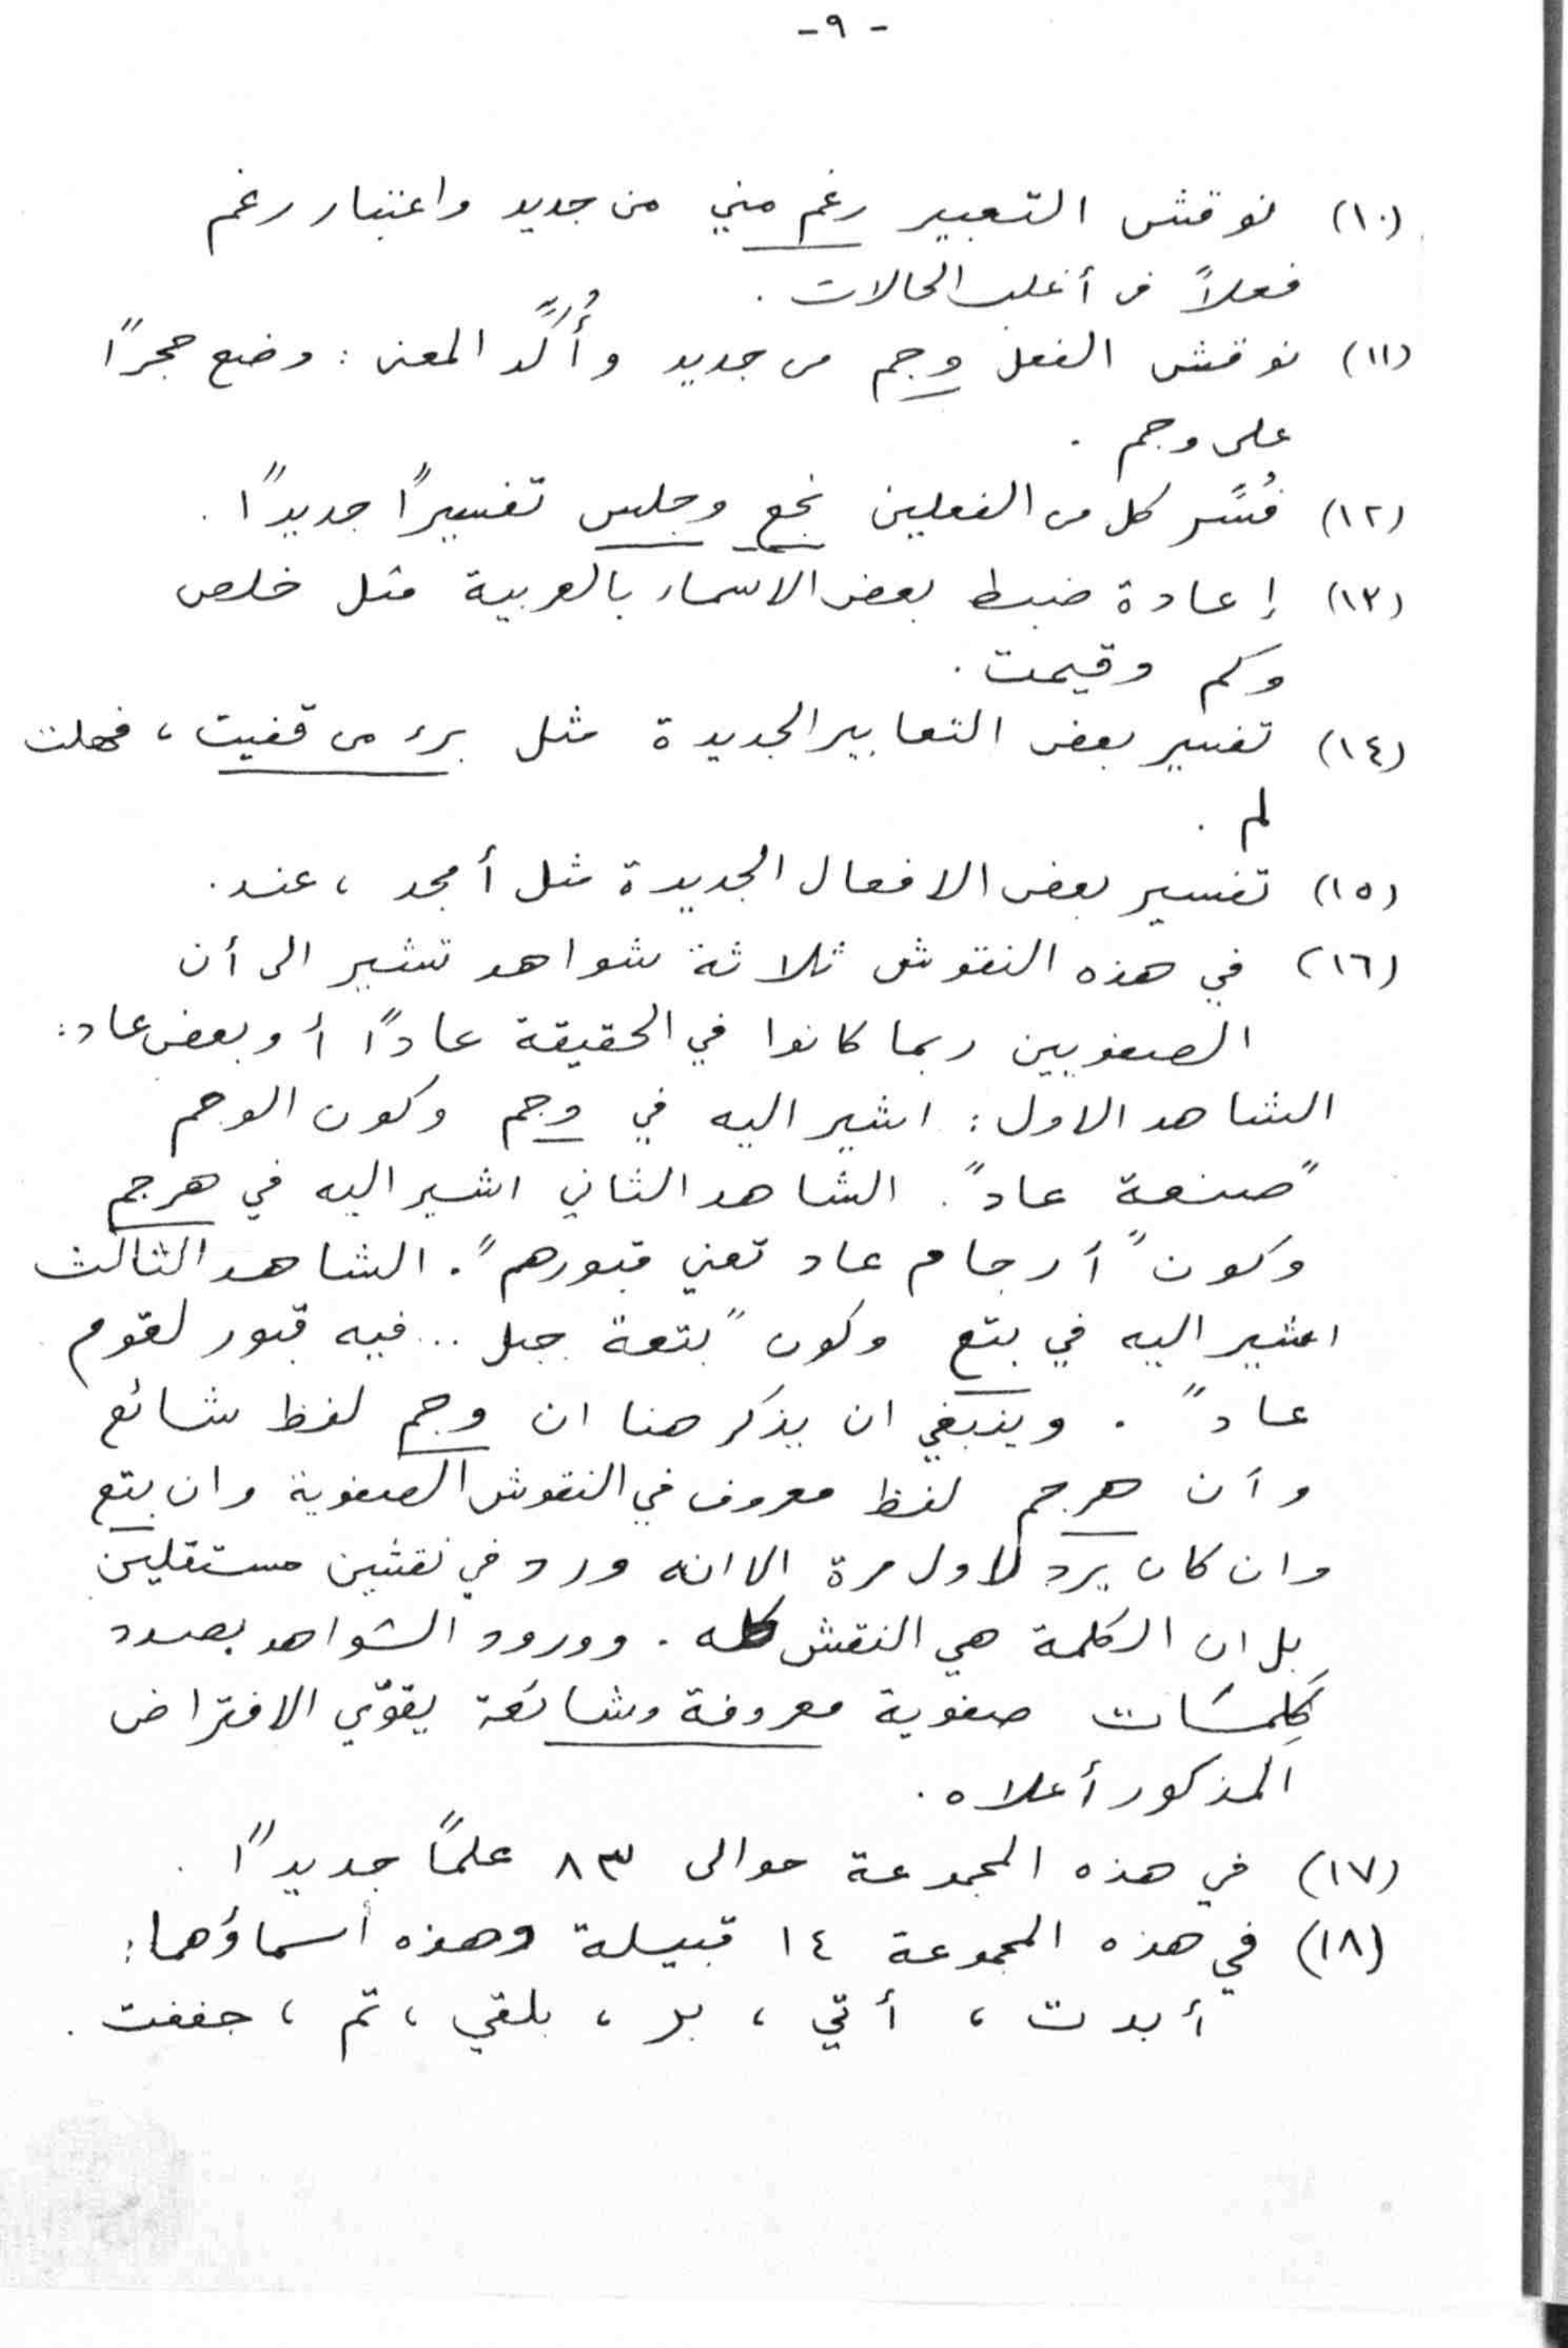 - ٩ -
(١٠) نوقش التعبير رغم مني من جديد واعتبار رغم
فعلاً في أغلب الحالات .
(١١) نوقش الفعل وجم من جديد وأُكِّد المعنى : وضع حجرًا
على وجم .
(١٢) فُسِّر كل من الفعلين نجع وجلس تفسيرًا جديدًا .
(١٣) إعادة ضبط بعض الاسماء بالعربية مثل خلص
وكم وقيمت .
(١٤) تفسير بعض التعابير الجديدة مثل برء من قفيت ، فهلت
لم .
(١٥) تفسير بعض الافعال الجديدة مثل أمجد ، عند .
(١٦) في هذه النقوش ثلاثة شواهد تشير الى أن
الصفويين ربما كانوا في الحقيقة عادًا أو بعض عاد :
الشاهد الاول : اشير اليه في وجم وكون الوجم
"صنعة عاد" . الشاهد الثاني اشير اليه في هرجم
وكون "أرجام عاد تعني قبورهم" . الشاهد الثالث
اشير اليه في بتع وكون "بتعة جبل .. فيه قبور لقوم
عاد" . وينبغي ان يذكر هنا ان وجم لفظ شائع
وأن هرجم لفظ معروف في النقوش الصفوية وان بتع
وان كان يرد لاول مرة الا انه ورد في نقشين مستقلين
بل ان الكلمة هي النقش كله . وورود الشواهد بصدد
كلمات صفوية معروفة وشائعة يقوّي الافتراض
المذكور أعلاه .
(١٧) في هذه المجموعة حوالى ٨٣ علمًا جديدًا .
(١٨) في هذه المجموعة ١٤ قبيلة وهذه أسماؤها :
أبدت ، أتي ، بر ، بلقي ، تم ، جففت .